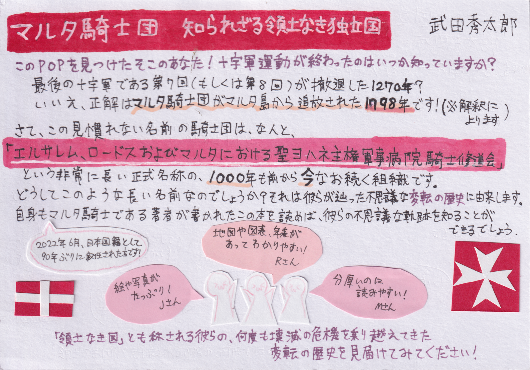 マルタ騎士団 知られざる領土なき独立国
武田秀太郎
このPOPを見つけたそこのあなた!十字軍運動が終わったのはいつか知っていますか?
最後の十字軍である第7回(もしくは第8回)が撤退した1270年?
いいえ、正解はマルタ騎士団がマルタ島から追放された1798年です!(※解釈によります)
さて、この見慣れない名前の騎士団は、なんと、
「エルサレム、ロードスおよびマルタにおける聖ヨハネ主権軍事病院騎士修道会」
という非常に長い正式名称の、1000年も前から今なお続く組織です。
どうしてこのような長い名前なのでしょうか?それは彼らが辿った不思議な変転の歴史に由来します。
自身もマルタ騎士である著者が書かれたこの本を読めば、彼らの不思議な軌跡を知ることが
できるでしょう。
2022年6月、日本国籍として
90年ぶりに叙任されたまです!
地図や図表、年表が
あってわかりやすい!
Rさん
絵や写真が
たっぷり!
Jさん
分厚いのに
読みやすい!
Mさん
「領土なき国」とも称される彼らの、何度も壊滅の危機を乗り越えてきた
変転の歴史を見届けてみてください!